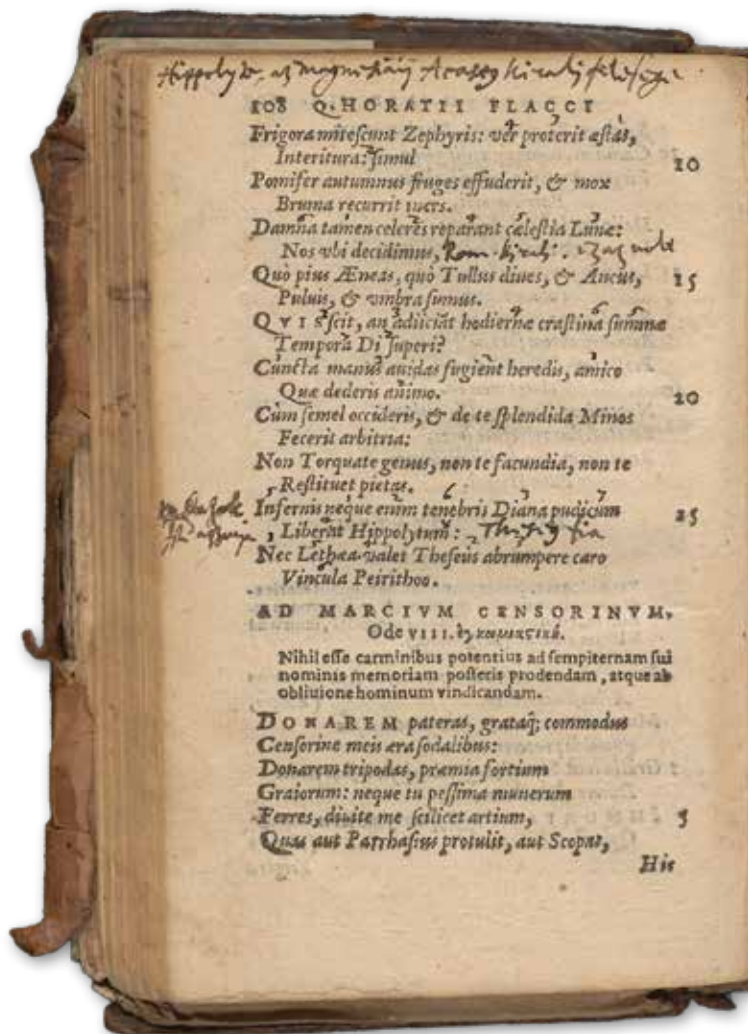 Hippolyte, az
108 Q. HORATII FLACCI
Frigora mitescunt Zephyris: vêr proterit æstas,
Interitura: simul
10
Pomifer autumnus fruges effuderit, & mox
Bruma recurrit iners.
Damna tamen celeres reparant cælestia Lunæ:
Nos vbi decidimus,
Quò pius Æneas, quò Tullus diues, & Ancus, 15
Puluis, & vmbra sumus.
QVIS scit, an adiiciāt hodiernæ crastina summæ
Tempora Di superi?
Cuncta manus auidas fugient heredis, amico
Quæ dederis animo. 20
Cùm semel occideris, & de te splendida Minos
Fecerit arbitria:
Non Torquate genus, non te facundia, non te
Restituet pietas.
Infernis neque enim tenebris Diana pudicum 25
Liberat Hippolytum:
Nec Lethæa valet Theseus abrumpere caro
Vincula Peirithoo.
AD MARCIVM CENSORINVM,
Ode VIII.
Nihil esse carminibus potentius ad sempiternam sui
nominis memoriam posteris prodendam, atque ab
obliuione hominum vindicandam.
DONAREM pateras, grataq; commodus
Censorine meis æra sodalibus:
Donarem tripodas, præmia fortium
Graiorum: neque tu pessima munerum
Ferres, diuite me scilicet artium, 5
Quas aut Parrhasius protulit, aut Scopas,
Hic